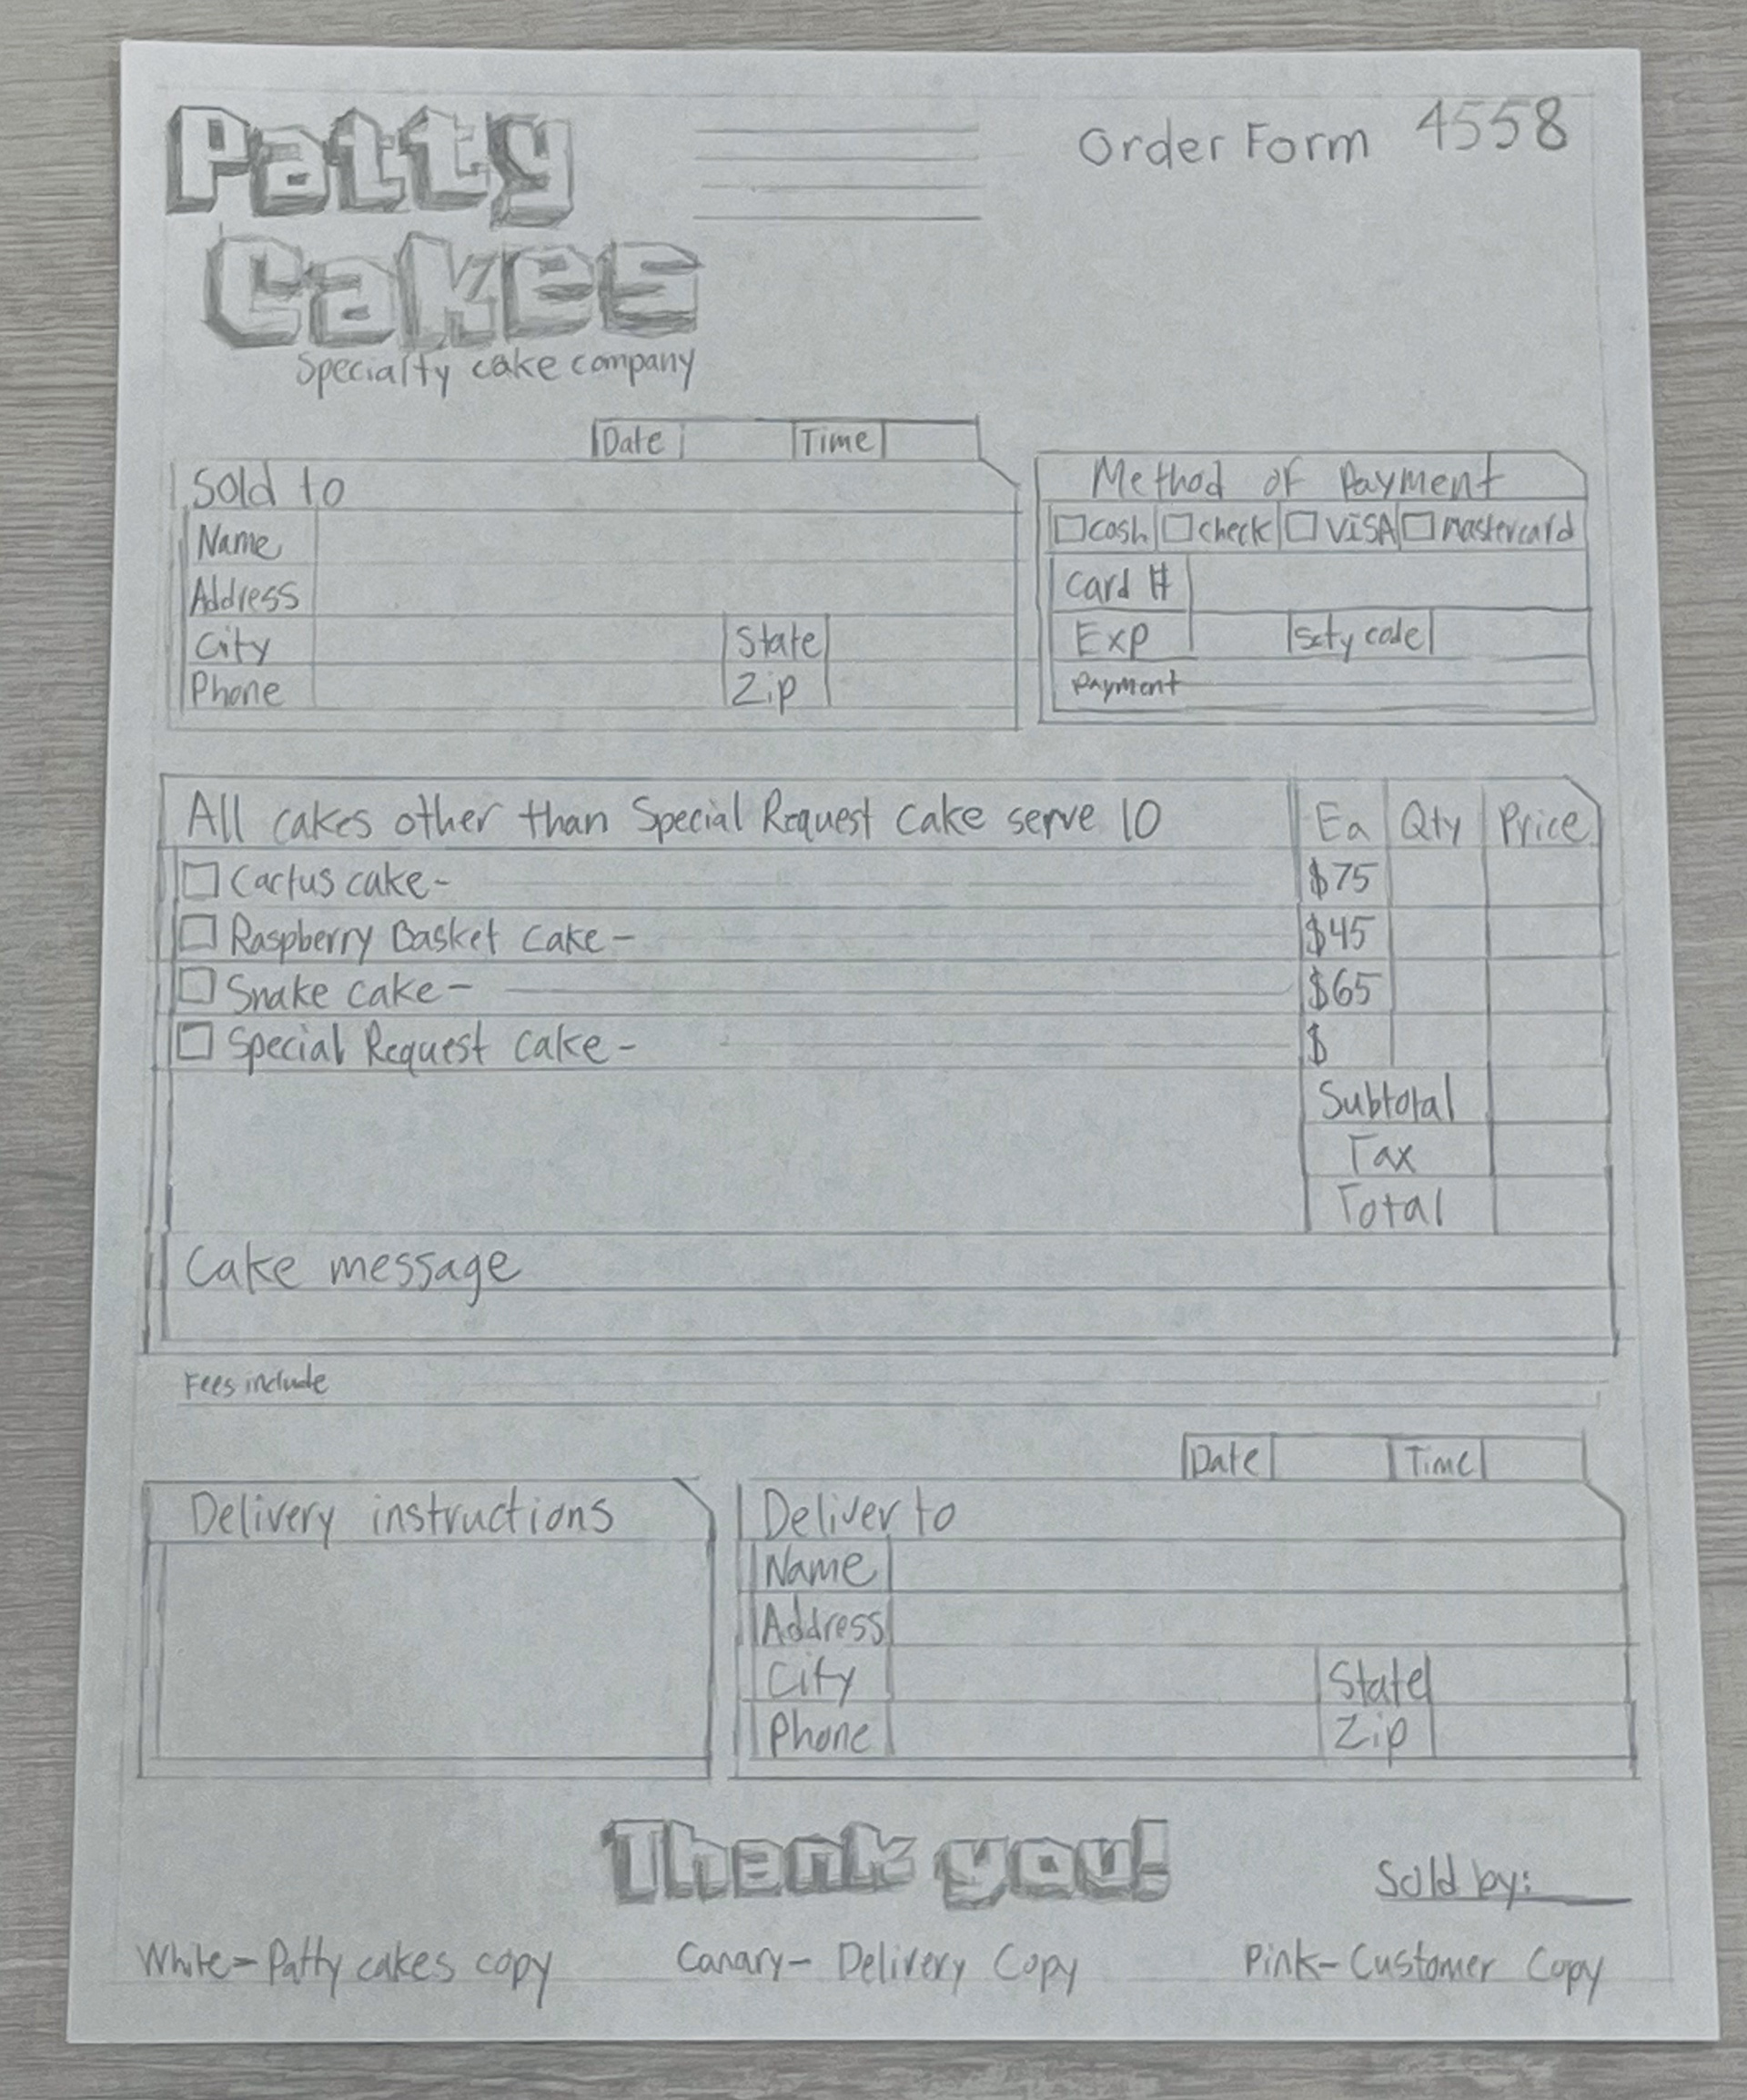 Patty
Cakes
Specialty cake company
Order Form 4558
Date Time
Sold to
Name
Address
City State
Phone Zip
Method of Payment
cash check VISA mastercard
Card #
Exp Scty code
Payment
All cakes other than Special Request Cake serve 10 Ea Qty Price
Cactus cake- $75
Raspberry Basket Cake- $45
Snake cake- $65
Special Request Cake- $
Subtotal
Tax
Total
Cake message
Fees include
Delivery instructions
Date Time
Deliver to
Name
Address
City State
Phone Zip
Thank you!
Sold by:
White- Patty cakes copy Canary- Delivery Copy Pink- Customer Copy